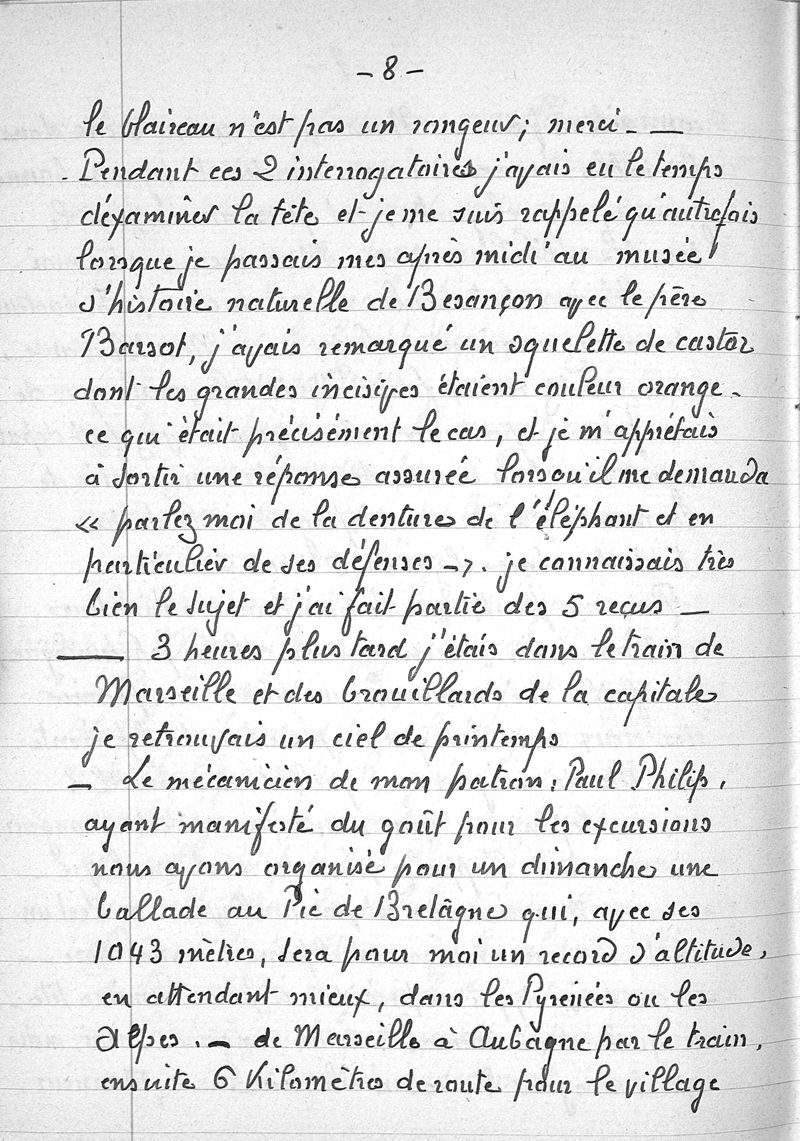 - 8 -
le blaireau n'est pas un rongeur; merci. —
. Pendant ces 2 interrogatoires j'avais eu le temps
d'éxaminer la tête et je me suis rappelé qu'autrefois
lorsque je passais mes après midi au musée
d'histoire naturelle de Besançon avec le père
Barsot, j'avais remarqué un squelette de castor
dont les grandes incisives étaient couleur orange.
ce qui était précisément le cas, et je m'apprétais
à sortir une réponse assurée lorsqu'il me demanda
« parlez moi de la denture de l'éléphant et en
particulier de ses défenses -». je connaissais très
bien le sujet et j'ai fait partie des 5 reçus —
— 3 heures plus tard j'étais dans le train de
Marseille et des brouillards de la capitale
je retrouvais un ciel de printemps
— Le mécanicien de mon patron, Paul Philip,
ayant manifesté du goût pour les excursions
nous avons organisé pour un dimanche une
ballade au Pic de Bretâgne qui, avec ses
1043 mètres, sera pour moi un record d'altitude,
en attendant mieux, dans les Pyrenées ou les
Alpes. — de Marseille à Aubagne par le train,
ensuite 6 Kilomètres de route pour le village